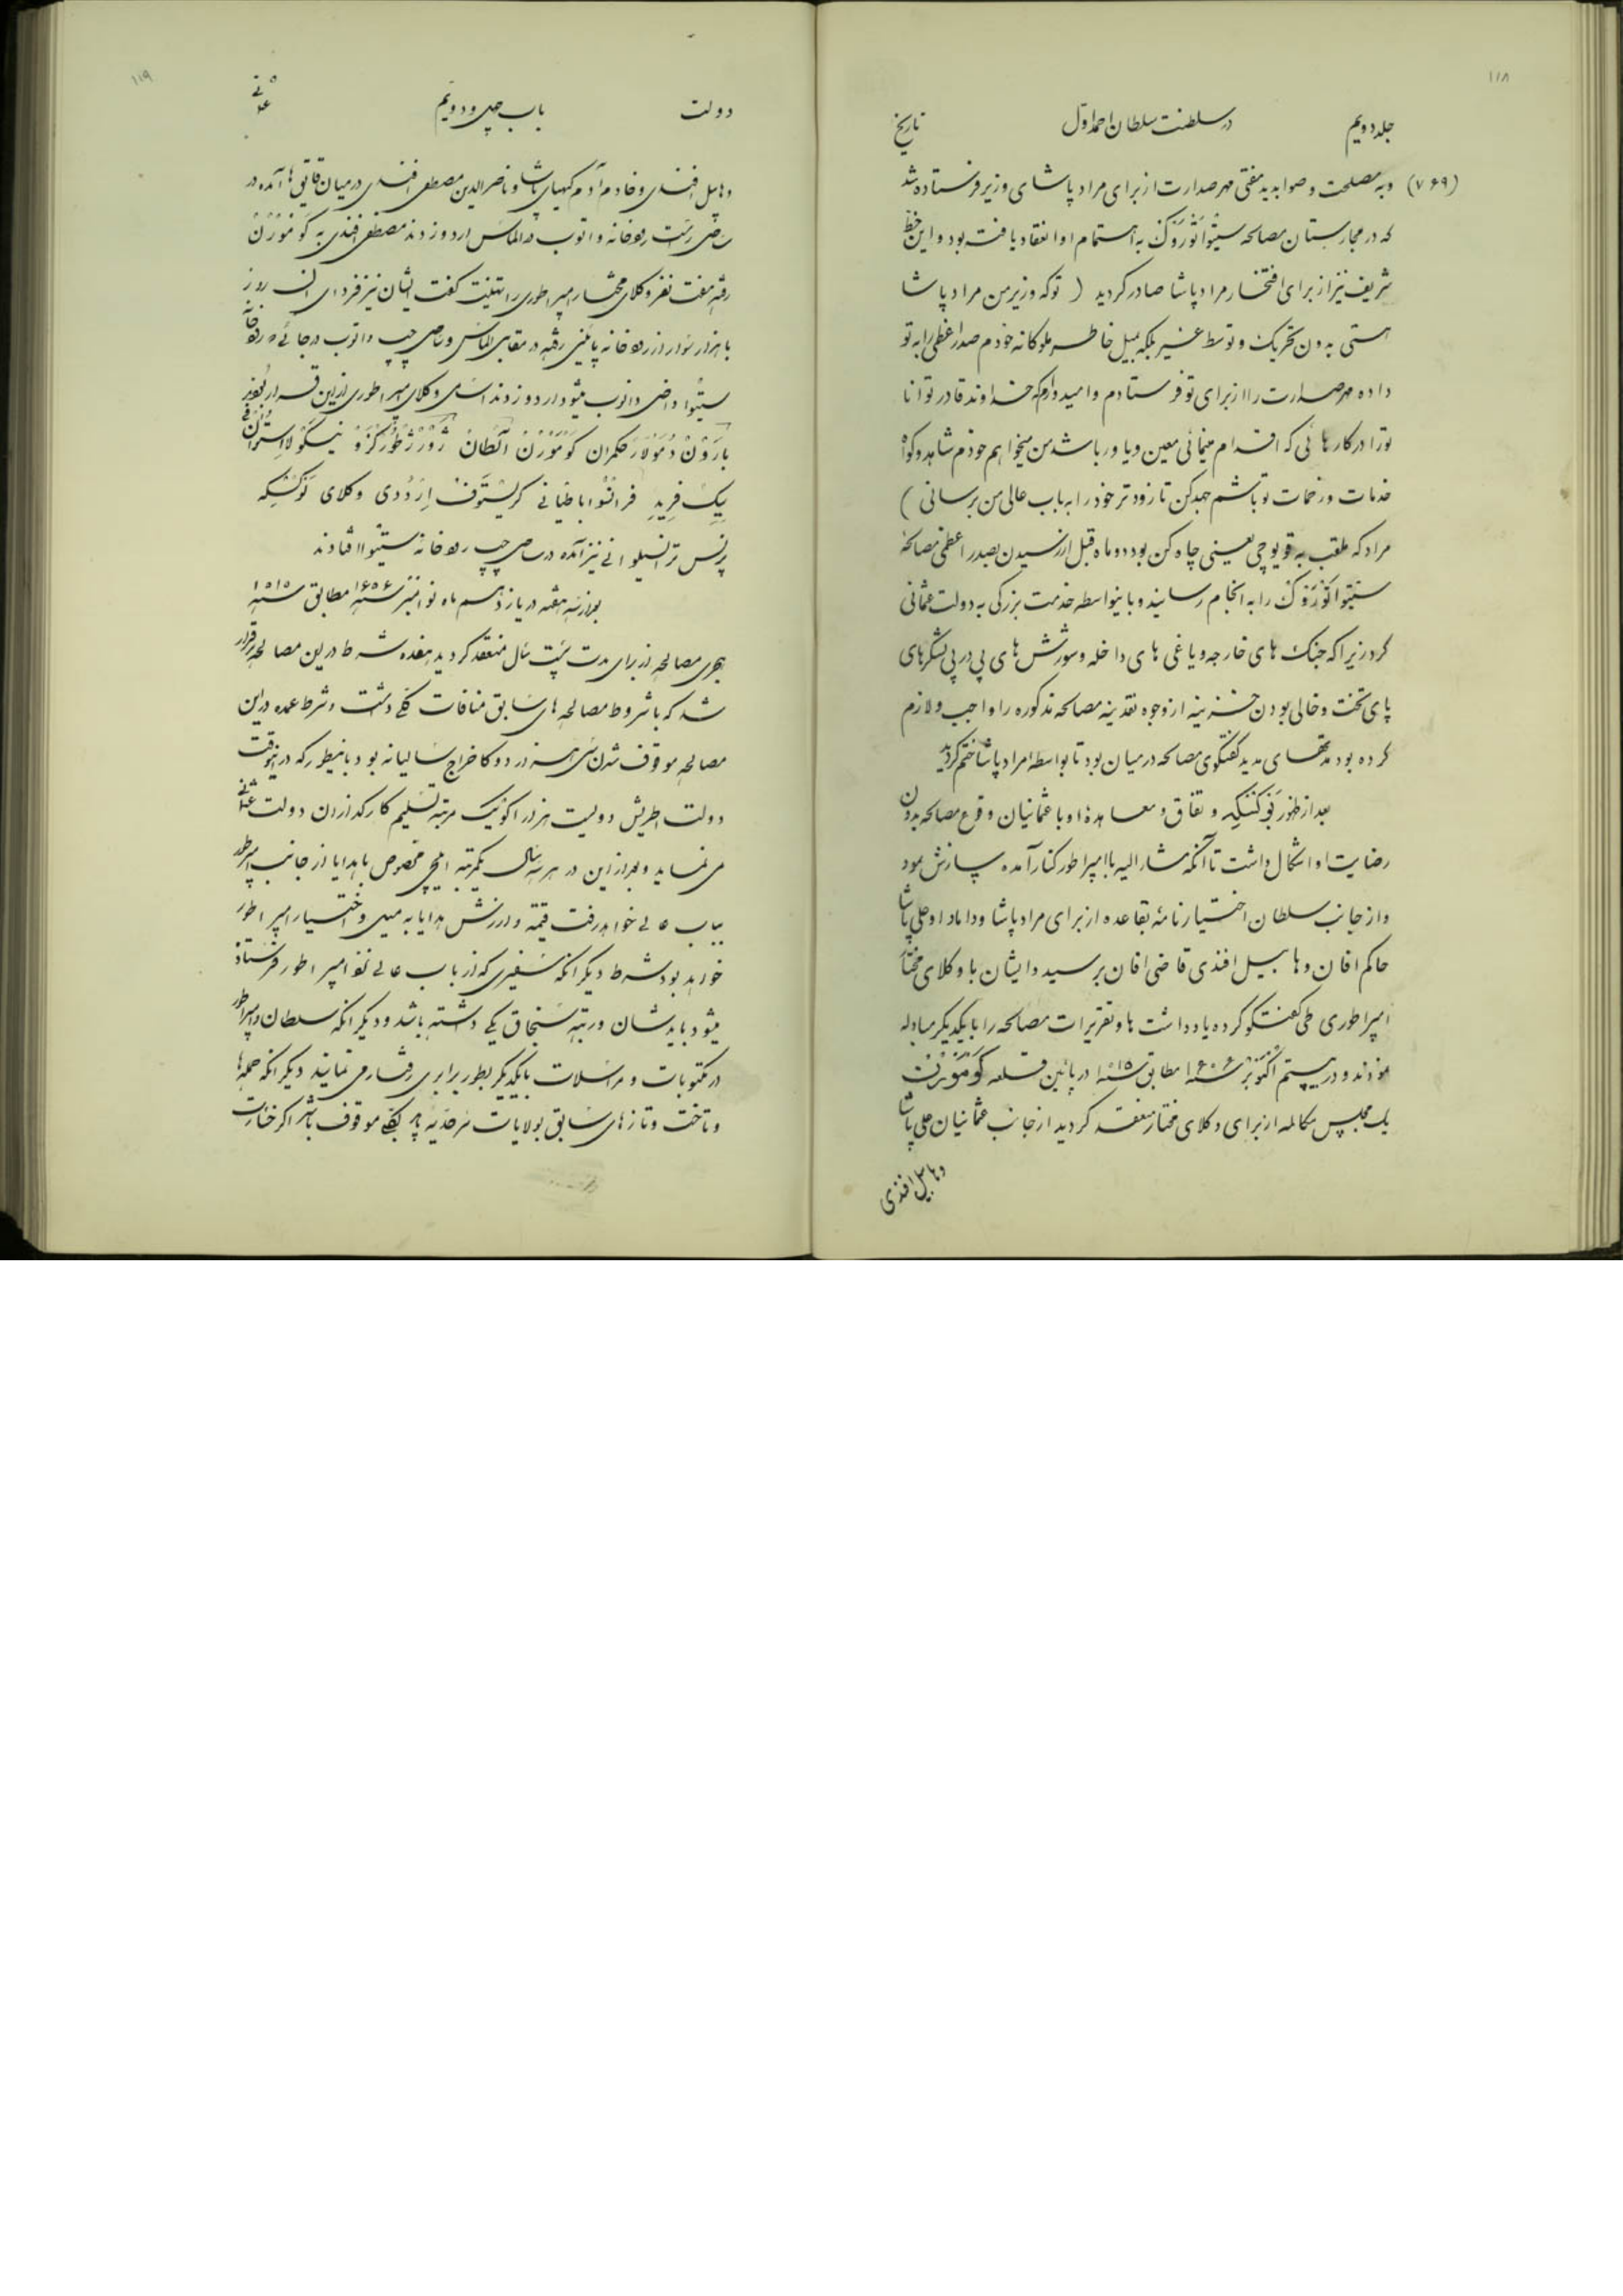 ۱۱۸
جلد دویم
در سلطنت سلطان احمد اول
تاریخ
(۷۶۹) و به مصلحت و صوابدید مفتی مهر صدارت از برای مراد پاشای وزیر فرستاده شد
که در مجارستان مصالحه سیتواتوروک به اهتمام او انعقاد یافت بود و این خط
شریف نیز از برای افتخار مراد پاشا صادر کردید ( تو که وزیر من مراد پاشا
هستی بدون تحریک و توسط غیر بلکه بمیل خاطر ملوکانه خودم صدراعظمی را به تو
داده مهر صدارت را از برای تو فرستادم و امیدوارم که خداوند قادر توانا
تو را در کارهائی که اقدام مینمائی معین و یاور باشد من میخواهم خودم شاهد و کواه
خدمات و زحمات تو باشم جهد کن تا زودتر خود را به باب عالی من برسانی )
مراد که ملقب به قویوچی یعنی چاه کن بود دو ماه قبل از رسیدن بصدراعظمی مصالحهٔ
سیتواتوروک را به انجام رسانید و باینواسطه خدمت بزرکی به دولت عثمانی
کرد زیرا که جنک های خارجه و یاغی های داخله و شورش های پی در پی لشکرهای
پای تخت و خالی بودن خزینه از وجوه نقدینه مصالحه مذکوره را واجب و لازم
کرده بود مدتهای مدید کفتکوی مصالحه در میان بود تا بواسطه مراد پاشا ختم کردید
بعد از ظهور بوکتسکیه و نفاق و معاهدهٔ او با عثمانیان وقوع مصالحه بدون
رضایت او اشکال داشت تا آنکه مشارالیه با امپراطور کنار آمده سازش نمود
و از جانب سلطان اختیارنامهٔ بقاعده از برای مراد پاشا و داماد او علی پاشا
حاکم افان و هابیل افندی قاضی افان برسید و ایشان با وکلای مختار
امپراطوری طی کفتکو کرده یادداشت ها و تقریرات مصالحه را با یکدیکر مبادله
نمودند و در بیستم اکتوبر سنه ۱۶۰۶ مطابق سنه ۱۰۱۵ در پائین قلعه کومورن
یک مجلس مکالمه از برای وکلای مختار منعقد کردید از جانب عثمانیان علی پاشا
وهابیل افندی
۱۱۹
دولت
باب چهل و دویم
عثمانی
وهابیل افندی و خادم آدم کهیای پاشا و ناصرالدین مصطفی افندی در میان قایق ها آمده در
ساحل راست رودخانه دانوب در الماس اردو زدند مصطفی افندی به کومورن
رفته هفت نفر وکلای مختار امپراطوری را تهنیت کفت ایشان نیز فردای آن روز
با هزار سوار از رودخانه پائین رفته در مقابل الماس و ساحل چپ دانوب در جائیکه رودخانه
سیتوا داخل دانوب میشود اردو زدند اسامی وکلای امپراطوری از این قرار بود
بارون دمولار حکمران کومورن الطان ژورژ طورزو نیکولا ایستوانفی
یک فرید فرانسوا باطیانی کریستوف اردودی وکلای بوکتسکیه
پرنس ترانسیلوانی نیز آمده در ساحل چپ رودخانه سیتوا افتادند
بعد از سه هفته در یازدهم ماه نوامبر سنه ۱۶۰۶ مطابق سنه ۱۰۱۵
هجری مصالحه از برای مدت بیست سال منعقد کردید هفده شرط در این مصالحه برقرار
شد که با شروط مصالحه های سابق منافات کلی داشت و شرط عمده در این
مصالحه موقوف شدن سی هزار دوکا خراج سالیانه بود باینطور که در اینوقت
دولت اطریش دویست هزار اکو یک مرتبه تسلیم کارکذاران دولت عثمانی
می نماید و بعد از این در هر سه سال یکمرتبه ایلچی مخصوص با هدایا از جانب امپراطور
بباب عالی خواهد رفت قیمت و ارزش هدایا به میل و اختیار امپراطور
خواهد بود شرط دیکر آنکه سفیری که از باب عالی نزد امپراطور فرستاده
میشود باید شان و رتبه سنجاق بیکی داشته باشد و دیکر آنکه سلطان و امپراطور
در مکتوبات و مراسلات با یکدیکر بطور برابری رفتار می نمایند دیکر آنکه حمله ها
و تاخت و تازهای سابق بولایات سرحدیه بالکلیه موقوف باشد اکر خسارت